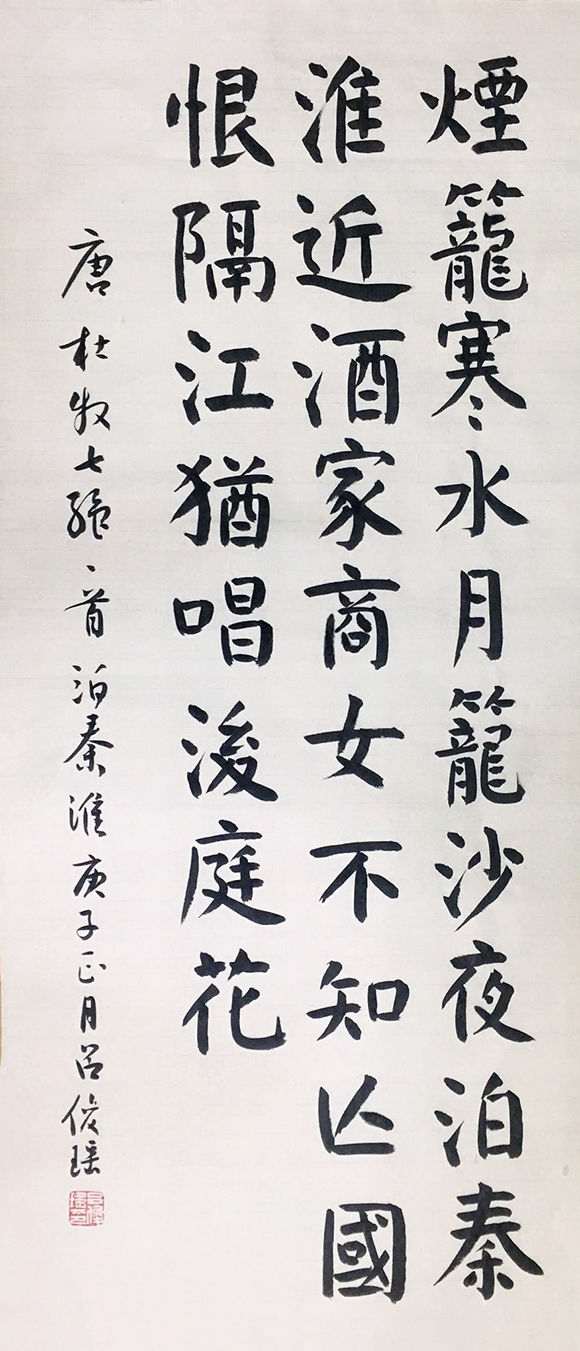 煙籠寒水月籠沙夜泊秦
淮近酒家商女不知亾國
恨隔江猶唱後庭花
唐杜牧七絕一首泊秦淮庚子正月呂俊瑶